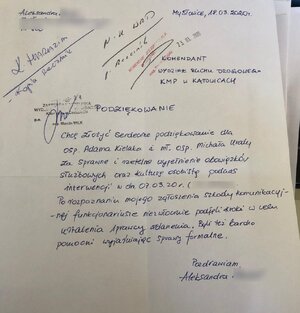 Aleksandra
Mysłowice, 18.03.2020r.
KOMENDANT
WYDZIAŁ RUCHU DROGOWEGO
KMP w KATOWICACH
PODZIĘKOWANIE
Chcę złożyć serdeczne podziękowanie dla
asp. Adama Kielak i mł. asp. Michała
za sprawne i rzetelne wypełnienie obowiązków
służbowych oraz kulturę osobistą podczas
interwencji w dn 07.03.20r.
Po rozpoznaniu mojego zgłoszenia szkody komunikacyj-
nej funkcjonariusze niezwłocznie podjęli kroki w celu
ustalenia sprawcy zdarzenia. Byli też bardzo
pomocni wyjaśniając sprawy formalne.
Pozdrawiam,
Aleksandra